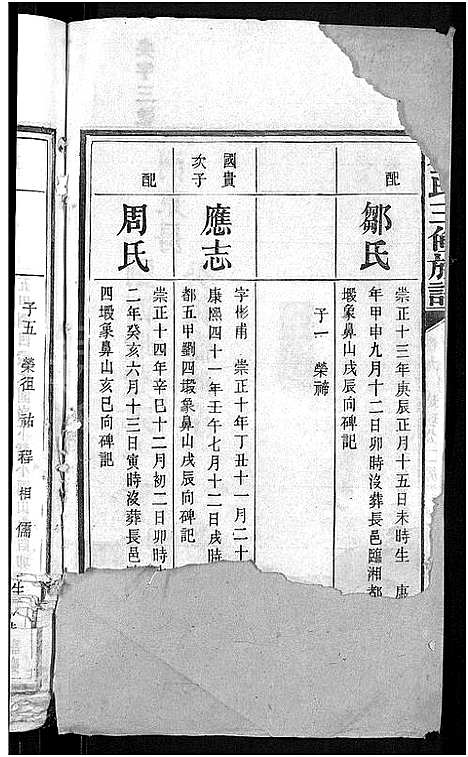 氏三修族譜
配
鄒氏
崇正十三年庚辰正月十五日未時生
年甲申九月十二日卯時沒葬長邑臨湘都
塅象鼻山戌辰向碑記
子一 榮禘
國貴
次子
應志
字彬甫 崇正十年丁丑十一月二十
康熙四十一年壬午七月十二日戌時
都五甲劉四塅象鼻山戌辰向碑記
配
周氏
崇正十四年辛巳十二月初二日卯時
二年癸亥六月十三日寅時沒葬長邑
四塅象鼻山亥巳向碑記
子五 榮徂 祐 程 相 儒
生